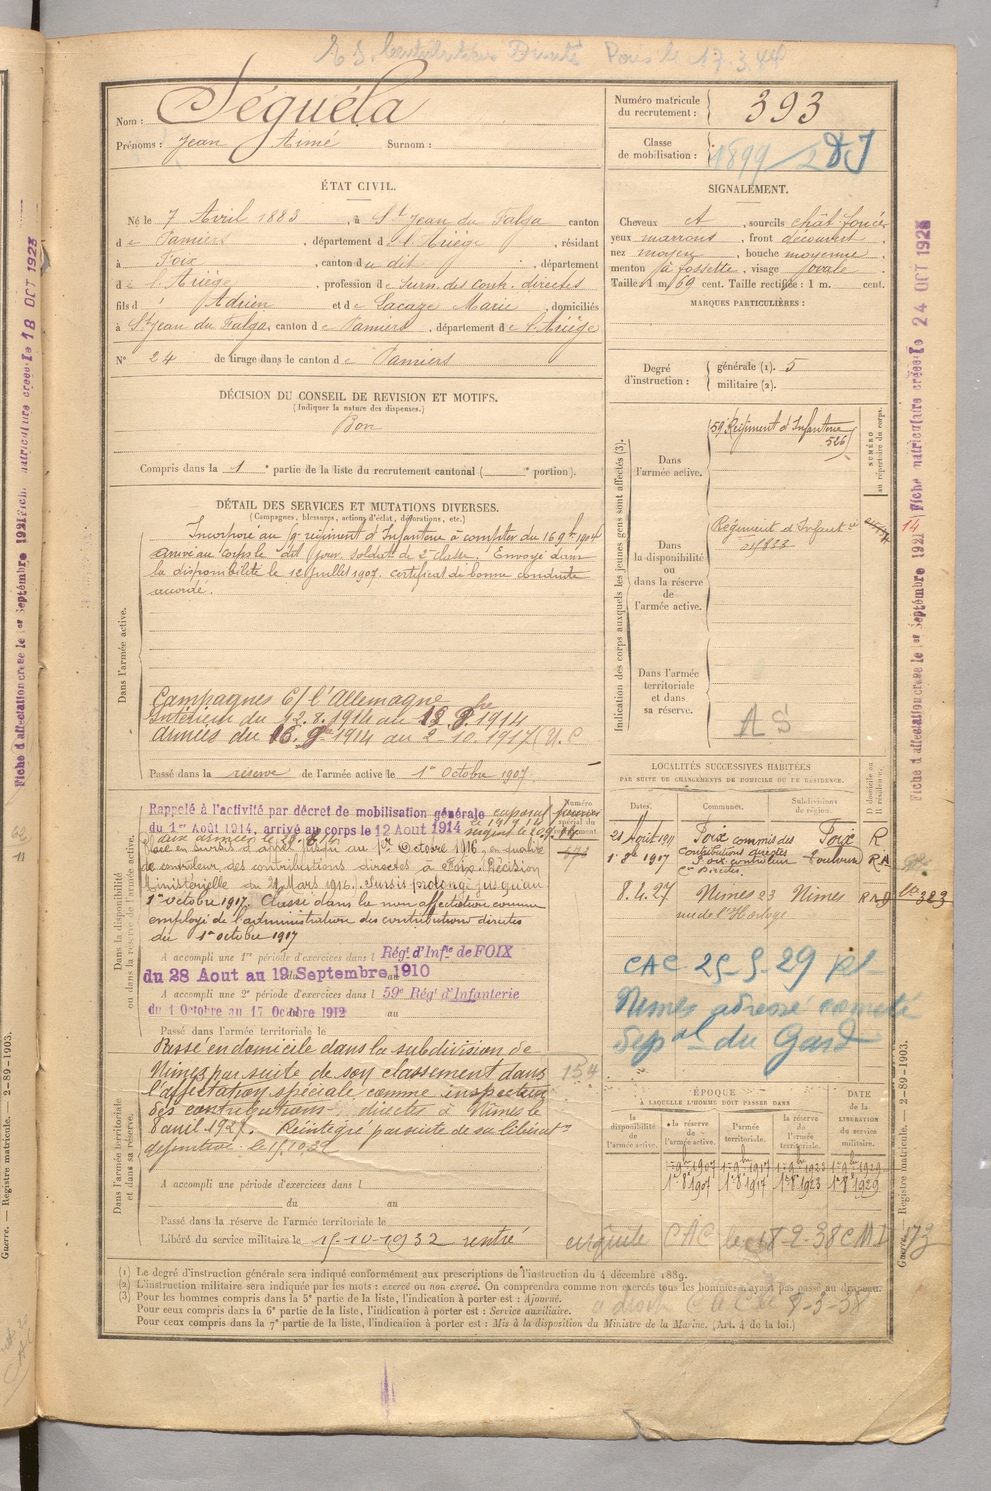 Nom : Séguéla
Prénoms : Jean Aimé Surnom :
Numéro matricule du recrutement : 393
Classe de mobilisation : 1899
ÉTAT CIVIL.
Né le 7 Avril 1883, à St Jean du Falga canton
de Pamiers, département de l'Ariège, résidant
à Foix, canton du dit, département
de l'Ariège, profession de Surn. des Cont. directes
fils d' Adrien et de Lacaze Marie, domiciliés
à St Jean du Falga, canton de Pamiers, département de l'Ariège
N° 24 de tirage dans le canton de Pamiers
SIGNALEMENT.
Cheveux ct, sourcils chât. foncé
yeux marrons, front découvert,
nez moyen, bouche moyenne,
menton à fossette, visage ovale.
Taille : 1 m. 69 cent. Taille rectifiée : 1 m. cent.
MARQUES PARTICULIÈRES :
Degré d'instruction : générale (1). 5
militaire (2).
DÉCISION DU CONSEIL DE REVISION ET MOTIFS.
(Indiquer la nature des dispenses.)
Bon
Compris dans la 1e partie de la liste du recrutement cantonal ( e portion).
DÉTAIL DES SERVICES ET MUTATIONS DIVERSES.
(Campagnes, blessures, actions d'éclat, décorations, etc.)
Dans l'armée active.
Incorporé au régiment d'Infanterie à compter du 16 9bre 1904
arrivé au corps le dit jour, soldat de 2e classe. Envoyé dans
la disponibilité le 12 juillet 1907. certificat de bonne conduite
accordé.
Campagnes C/ l'Allemagne
Intérieur du 12.8.1914 au 1914
Armées du 1914 au 2-10.1917 (U.C
Passé dans la réserve de l'armée active le 1er Octobre 1907.
Dans la disponibilité ou dans la réserve de l'armée active.
Rappelé à l'activité par décret de mobilisation générale
du 1er Août 1914, arrivé au corps le 12 Aout 1914
au 1er Octobre 1916, en qualité
de controleur des contributions directes à Foix. Décision
Ministérielle du 21 Mars 1916. Sursis prolongé jusqu'au
1er octobre 1917. Classé dans la non affectation comme
employé de l'administration des contributions directes
du 1er octobre 1917
A accompli une 1re période d'exercices dans l Régt d'Infie de FOIX
du 28 Aout au 19 Septembre 1910
A accompli une 2e période d'exercices dans l 59e Régt d'Infanterie
du 1 Octobre au 17 Octobre 1912
Passé dans l'armée territoriale le
Dans l'armée territoriale et dans sa réserve.
Passé en domicile dans la subdivision de
Nimes par suite de son classement dans 154
l'affectation spéciale comme inspecteur
des contributions directes à Nimes le
8 avril 1927. Réintégré par suite de sa libération
définitive le 15.10.32
A accompli une période d'exercices dans l
du au
Passé dans la réserve de l'armée territoriale le
Libéré du service militaire le 15-10-1932 rentré
Indication des corps auxquels les jeunes gens sont affectés (3).
NUMÉRO au répertoire du corps.
Dans l'armée active.
59 Régiment d'Infanterie
526
Dans la disponibilité ou dans la réserve de l'armée active.
Régiment d'Infanterie
14
Dans l'armée territoriale et dans sa réserve.
A S
LOCALITÉS SUCCESSIVES HABITÉES
PAR SUITE DE CHANGEMENTS DE DOMICILE OU DE RÉSIDENCE.
Dates. Communes. Subdivisions de région. D domicile ou R résidence.
21 Août 1911 Foix commis des Contributions directes Foix R
1917 Foix controleur Cn Directes Toulouse
8.4.27 Nimes 23 rue de l'Horloge Nimes
CAC 25-5-29 pl
Nimes adresse comité
Dépal du Gard
ÉPOQUE
A LAQUELLE L'HOMME DOIT PASSER DANS
la disponibilité de l'armée active. la réserve de l'armée active. l'armée territoriale. la réserve de l'armée territoriale. DATE de la LIBÉRATION du service militaire.
1r 8e 1907 1r 8e 1917 1r 8e 1923 1r 8e 1929
CAC le 18-2-38
8-3-38
(1) Le degré d'instruction générale sera indiqué conformément aux prescriptions de l'instruction du 4 décembre 1889.
(2) L'instruction militaire sera indiquée par les mots : exercé ou non exercé. On comprendra comme non exercés tous les hommes n'ayant pas passé au drapeau.
(3) Pour les hommes compris dans la 5e partie de la liste, l'indication à porter est : Ajourné.
Pour ceux compris dans la 6e partie de la liste, l'indication à porter est : Service auxiliaire.
Pour ceux compris dans la 7e partie de la liste, l'indication à porter est : Mis à la disposition du Ministre de la Marine. (Art. 4 de la loi.)
Guerre. — Registre matricule. — 2-89-1903.
Guerre. — Registre matricule. — 2-89-1903.
Fiche d'affectation créée le 1er Septembre 1921 Fiche matriculaire créée le 18 OCT 1928
Fiche d'affectation créée le 1er Septembre 1921 Fiche matriculaire créée le 24 OCT 1928